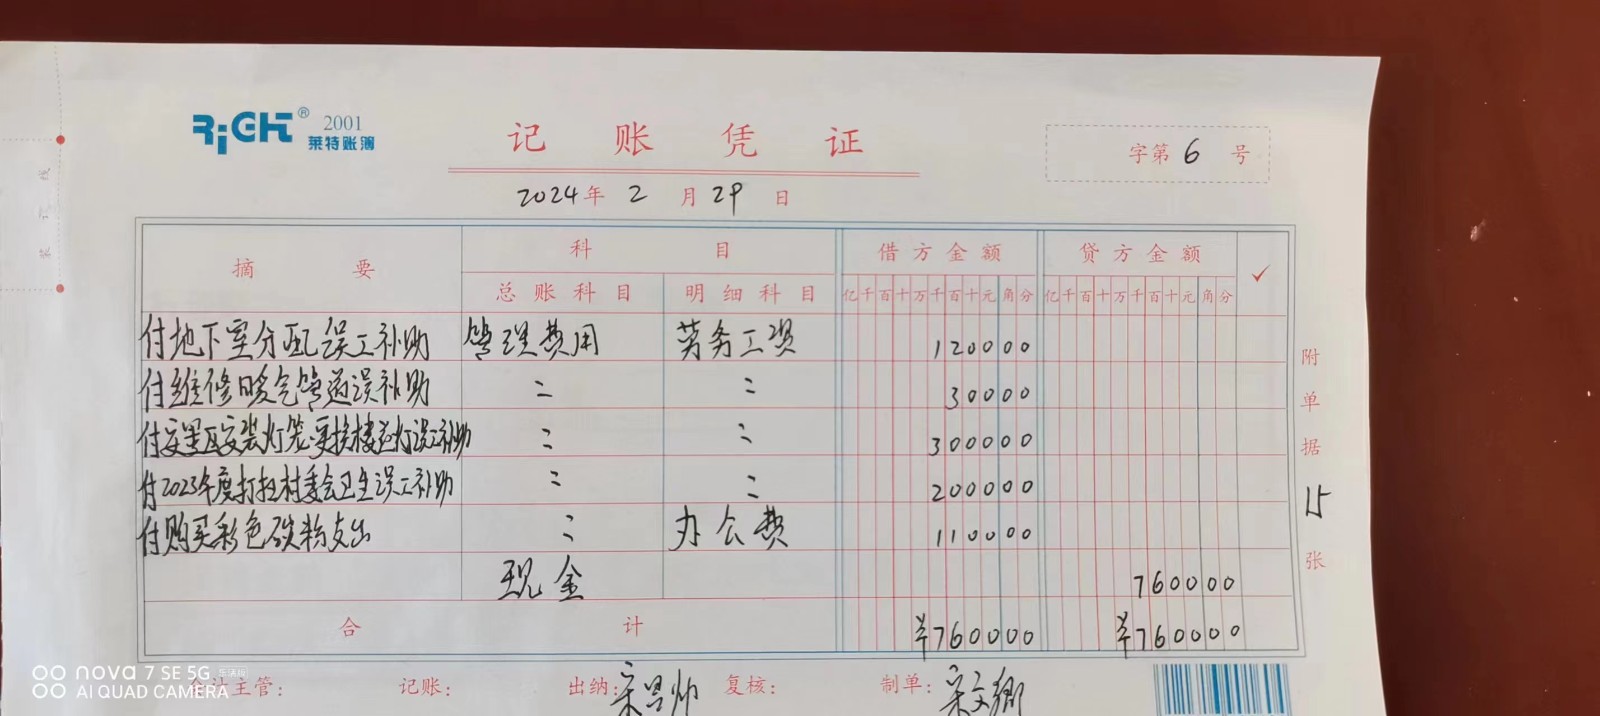 RiGHT® 2001
莱特账簿
记 账 凭 证
字第 6 号
2024年 2 月 29 日
摘 要 科 目 借方金额 贷方金额 ✓
总账科目 明细科目 亿千百十万千百十元角分 亿千百十万千百十元角分
付地下室分配误工补助 管理费用 劳务工资 120000
付维修暖气管道误补助 〃 〃 30000
安装灯笼·更换楼道灯误工补助 〃 〃 300000
付2023年度打扫村委会卫生误工补助 〃 〃 200000
付购买彩色碳粉支出 〃 办公费 110000
现金 760000
合 计 ¥760000 ¥760000
附单据 15 张
会计主管: 记账: 出纳: 复核: 制单:
nova 7 SE 5G
AI QUAD CAMERA